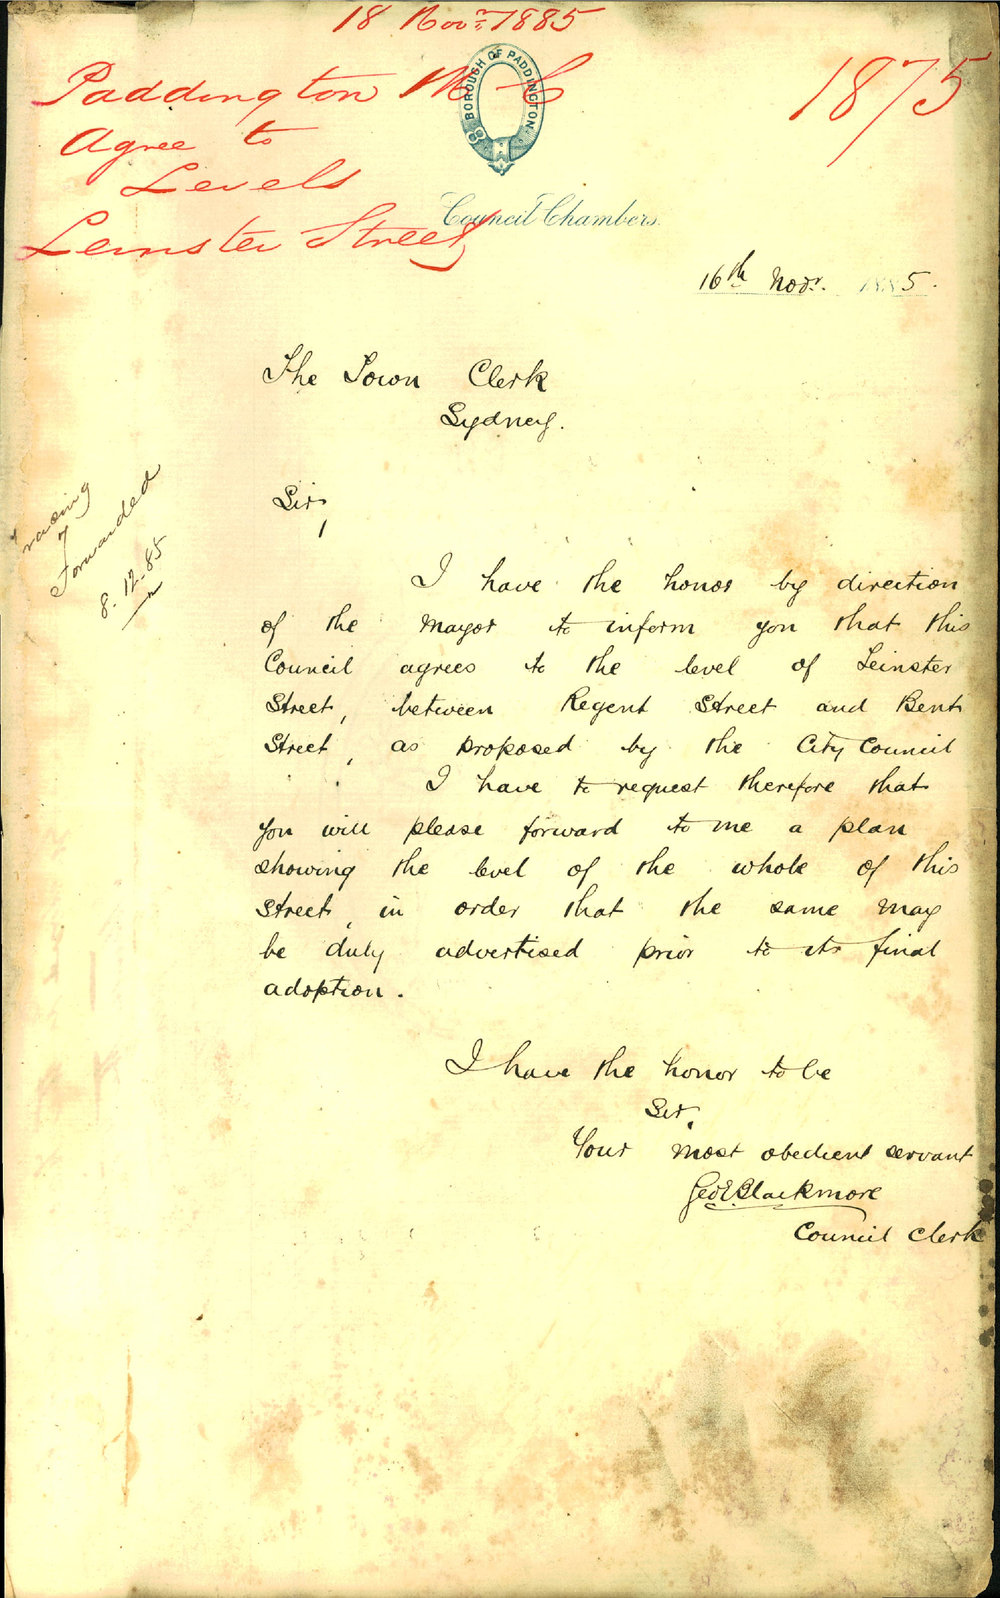 18 Novr. 1885
Paddington M C
1875
Agree to
Levels
Leinster Street
BOROUGH OF PADDINGTON
Council Chambers.
16th Novr. 1885.
The Town Clerk
Sydney.
Sir,
Tracing
Forwarded
8.12.85
I have the honor by direction
of the Mayor to inform you that this
Council agrees to the level of Leinster
Street, between Regent Street and Bent
Street, as proposed by the City Council
I have to request therefore that
you will please forward to me a plan
showing the level of the whole of this
Street, in order that the same may
be duly advertised prior to its final
adoption.
I have the honor to be
Sir,
Your most obedient servant
Geo E Blackmore
Council Clerk